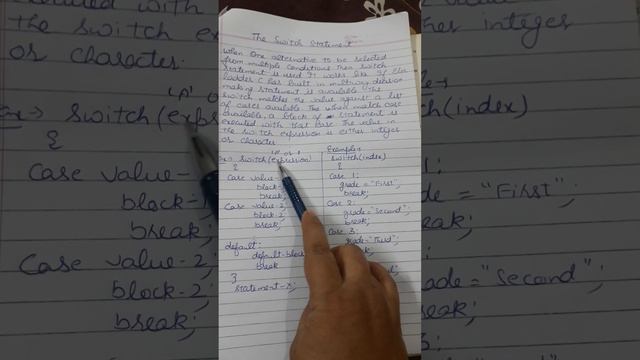 The Switch Statement
When One alternative to be selected
from multiple conditions then switch
statement is used. It works like If Else
ladder C has built in multiway decision
making statement is available. The
switch matches the value against a list
of cases available. The when match case
available, a block of statement is
executed with that case. The value in
the switch expression is either integer
or character.
'A' or 1
Ex→ Switch(expression)
{
Case value-
block-
break;
Case value-2;
block-2;
break;
default:
default-block
break
}
Statement-x;
Example→
switch(index)
{
Case 1:
grade = "First";
break;
Case 2:
grade="second";
break;
Case 3:
grade="Third";
the switch ex
or Character
'A' o
Ex→ Switch(exp
{
Case value-
block-
break;
Case value-2;
block-2;
break;
either integer
(index)
"First";
grade="second";
break;